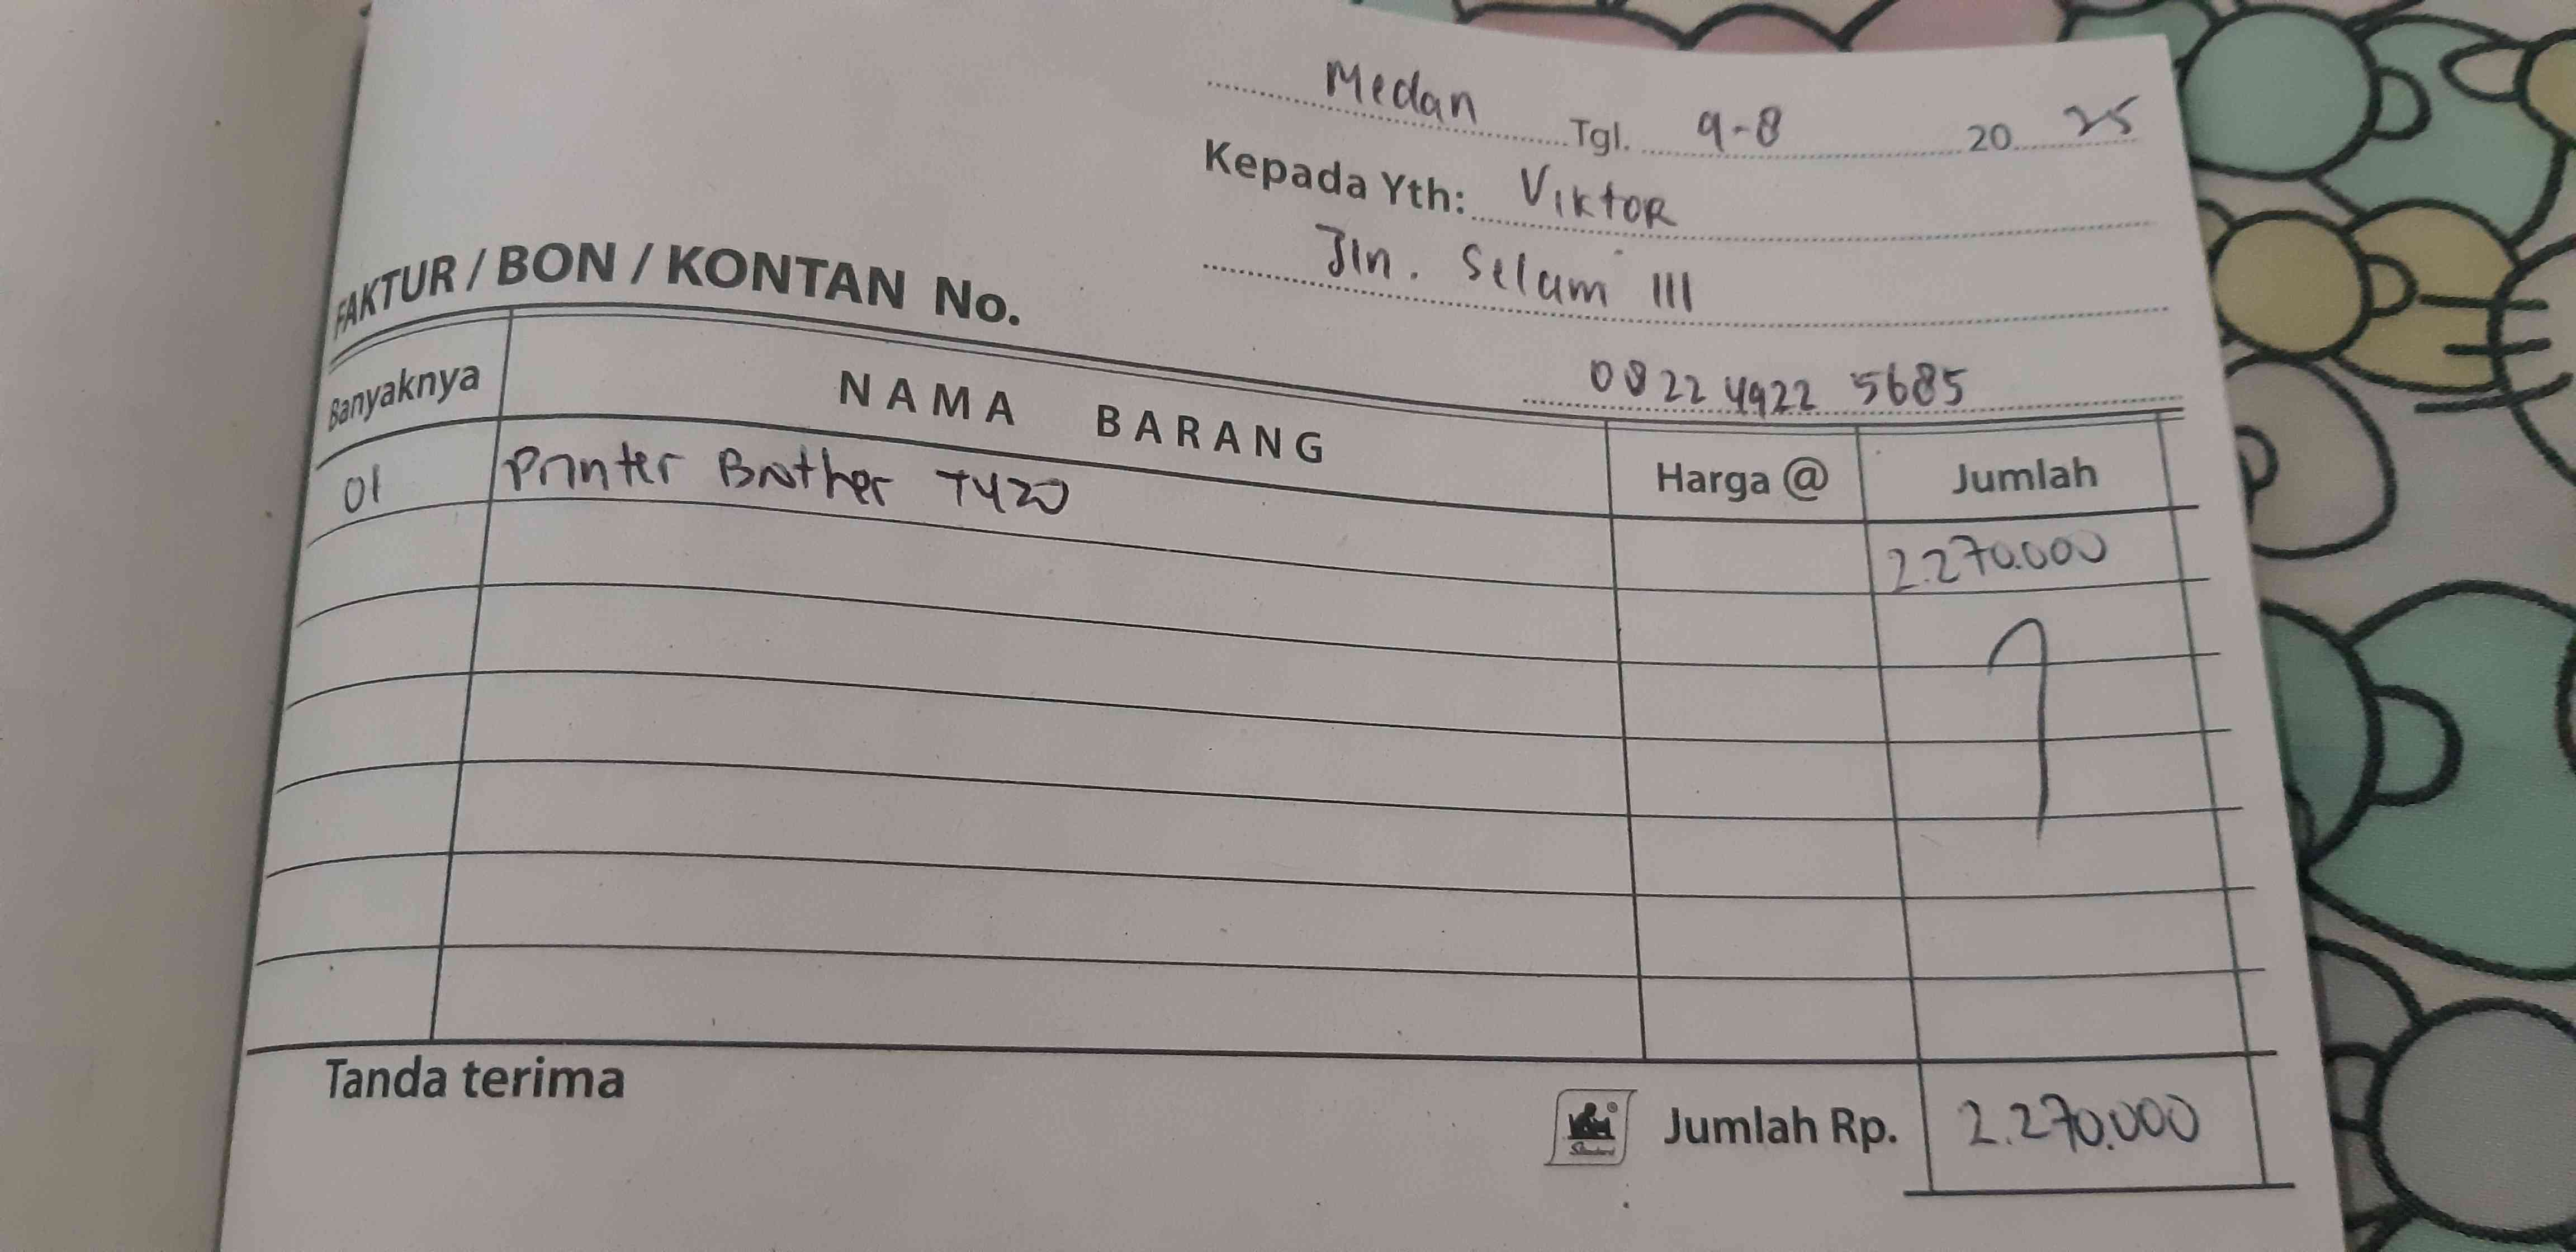 Medan Tgl. 9-8 20 25
Kepada Yth: Viktor
Jln. Selam III
0822 4922 5685
FAKTUR / BON / KONTAN No.
Banyaknya NAMA BARANG Harga @ Jumlah
01 Printer Brother T420 2.270.000
Tanda terima
Jumlah Rp. 2.270.000